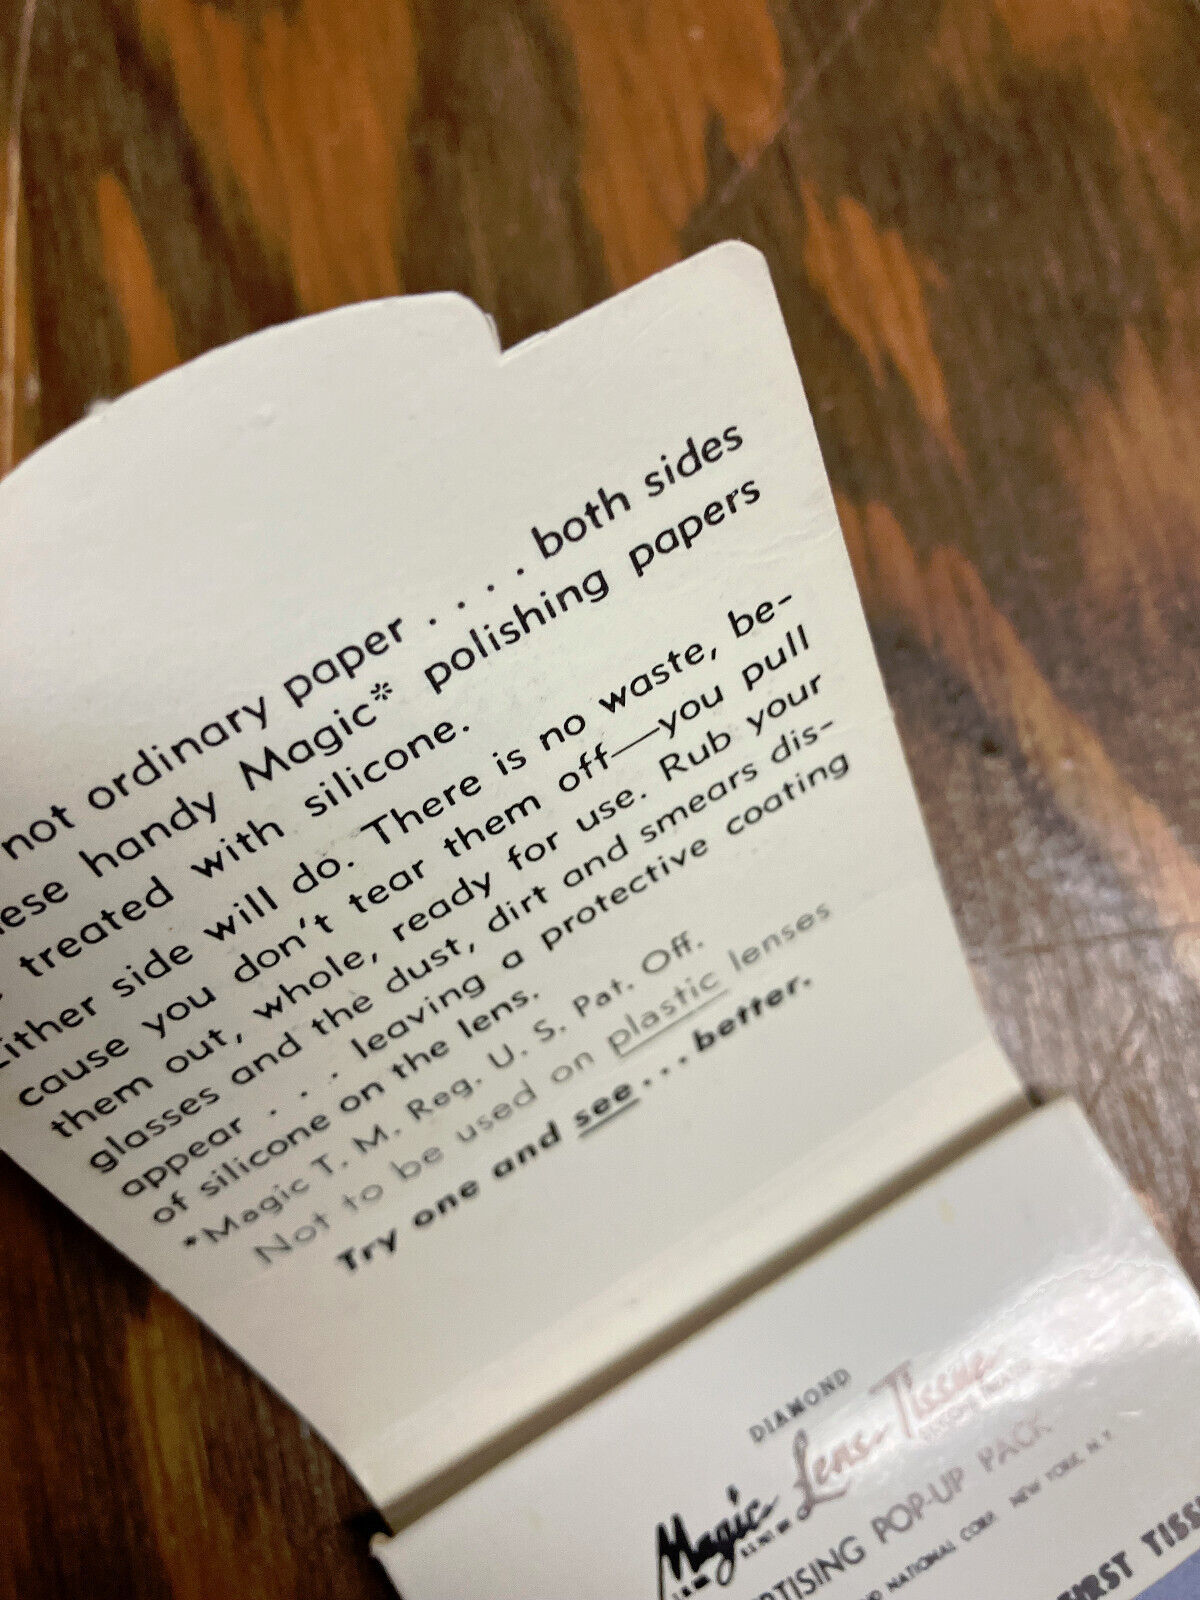 not ordinary paper . . . . both sides
hese handy Magic* polishing papers
treated with silicone.
Either side will do. There is no waste, be-
cause you don't tear them off—you pull
them out, whole, ready for use. Rub your
glasses and the dust, dirt and smears dis-
appear . . . leaving a protective coating
of silicone on the lens.
*Magic T. M. Reg. U. S. Pat. Off.
Not to be used on plastic lenses
Try one and see...better.
DIAMOND
Magic Lens-Tissue
RTISING POP-UP PACK
ND NATIONAL CORP. NEW YORK, N.Y.
FIRST TISS